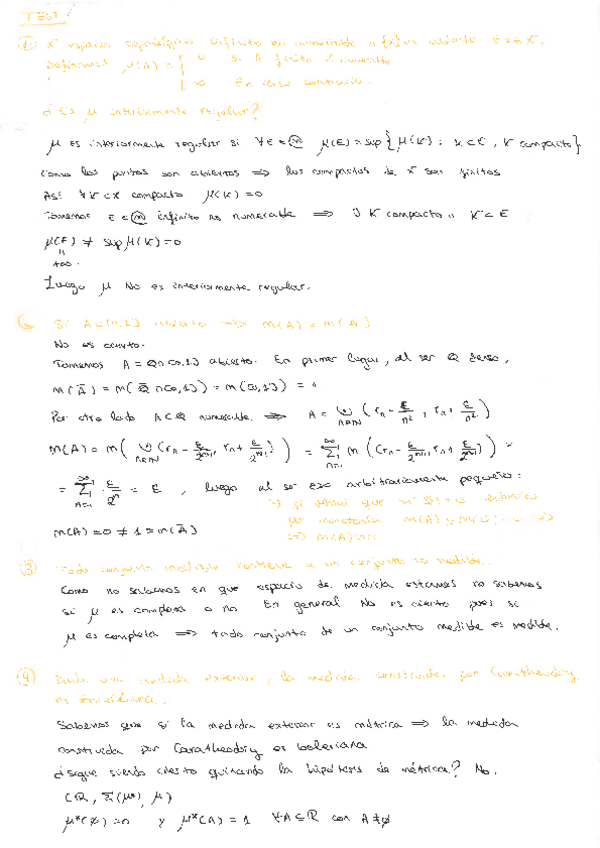 TEST
① X espacio topológico infinito no numerable y {x} es abierto ∀x∈X.
Definimos μ(A) = { 0 si A finito o numerable
∞ En caso contrario.
¿Es μ interiormente regular?
μ es interiormente regular si ∀E∈ⓜ μ(E)=sup{μ(K): K⊂E, K compacto}
Como los puntos son abiertos ⟹ los compactos de X son finitos
Así ∀K⊂X compacto μ(K)=0
Tomemos E∈ⓜ infinito no numerable ⟹ K compacto K⊂E
μ(E) ≠ sup μ(K)=0
+∞
Luego μ No es interiormente regular.
Si A⊂[0,1] abierto m(A) = m(Ā)
No es cierto.
Tomemos A = Q∩[0,1] abierto. En primer lugar, al ser Q denso,
m(Ā) = m(Q̄∩[0,1]) = m([0,1]) = 1
Por otro lado A⊂Q numerable ⟹ A = ⋃ n∈N (rₙ - ε/n², rₙ + ε/n²)
m(A) = m(⋃ n∈N (rₙ - ε/2ⁿ⁺¹, rₙ + ε/2ⁿ⁺¹)) = ∑ n=1 ∞ m((rₙ - ε/2ⁿ⁺¹, rₙ + ε/2ⁿ⁺¹)) =
= ∑ n=1 ∞ ε/2ⁿ = ε, luego al ser eso arbitrariamente pequeño:
si vemos que m(Q)=0 entonces
por monotonía m(A) ≤ m(Q)=0 ⟹
m(A)=0 ≠ 1 = m(Ā) ⟹ m(A)=0
③ Todo conjunto medible contiene a un conjunto no medible.
Como no sabemos en que espacio de medida estamos no sabemos
si μ es completa o no En general No es cierto pues si
μ es completa ⟹ todo conjunto de un conjunto medible es medible.
④ Dada una medida exterior, la medida construida por Caratheodory
es boreliana.
Sabemos que si la medida exterior es métrica ⟹ la medida
construida por Caratheodory es boreliana
¿Sigue siendo cierto quitando la hipótesis de métrica? No.
(R, Σ(μ*), μ)
μ*(∅)=0 y μ*(A)=1 ∀A⊆R con A≠∅